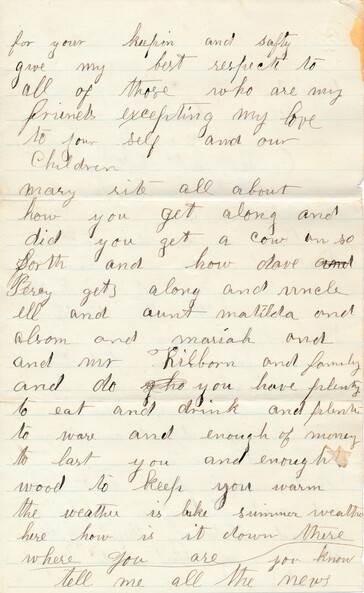 for your keepin and safty
give my best respect to
all of those who are my
friends excepting my love
to your self and our
Children
mary rite all about
how you get along and
did you get a cow on so
forth and how dave and
Percy gets along and uncle
ell and aunt matilda and
and mariah and
and mr Kilborn and family
and do you have plenty
to eat and drink and plenti
to ware and enough of money
to last you and enough
wood to keep you warm
the weather is like summer weather
here how is it down there
where you are you know
tell me all the news